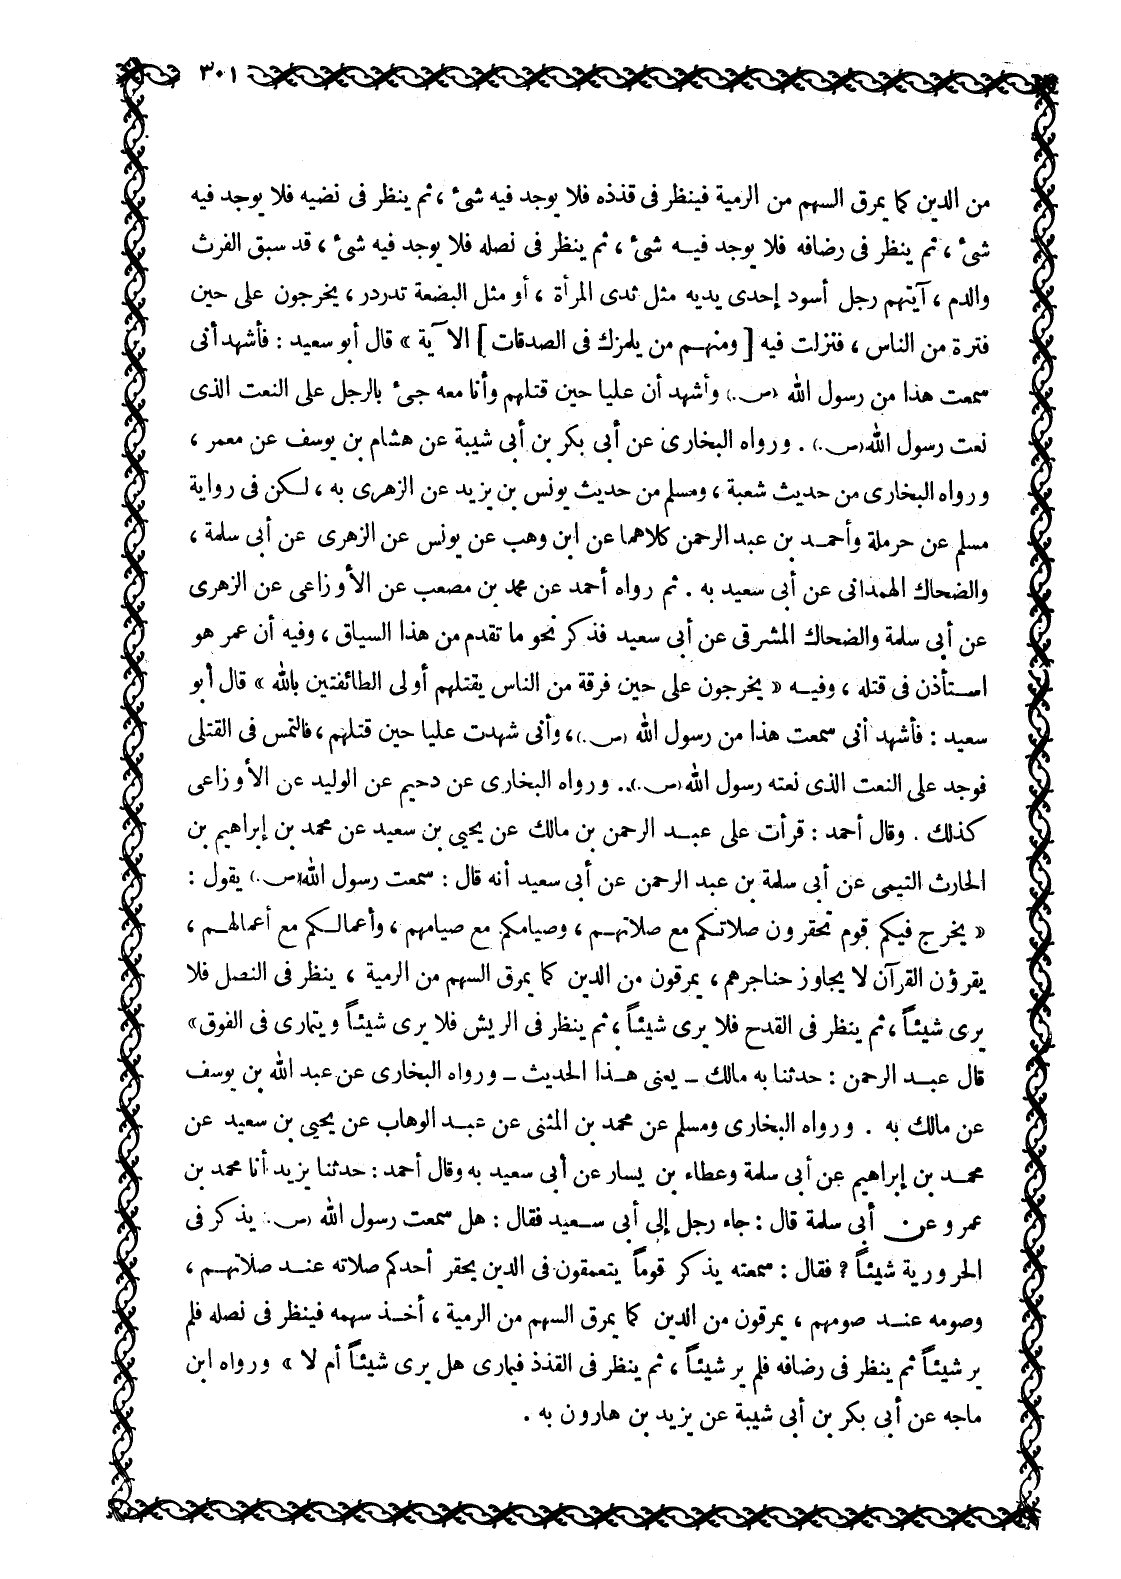 ٣٠١
من الدين كما يمرق السهم من الرمية فينظر فى قذذه فلا يوجد فيه شىء ، ثم ينظر فى نضيه فلا يوجد فيه
شىء ، ثم ينظر فى رضافه فلا يوجد فيـه شىء ، ثم ينظر فى نصله فلا يوجد فيه شىء ، قد سبق الفرث
والدم ، آيتهم رجل أسود إحدى يديه مثل ثدى المرأة ، أو مثل البضعة تدردر ، يخرجون على حين
فترة من الناس ، فنزلت فيه [ ومنهـم من يلمزك فى الصدقات ] الآية » قال أبو سعيد : فأشهد أنى
سمعت هذا من رسول الله (ص.) وأشهد أن عليا حين قتلهم وأنا معه جىء بالرجل على النعت الذى
نعت رسول الله(ص.) . ورواه البخارى عن أبى بكر بن أبى شيبة عن هشام بن يوسف عن معمر ،
ورواه البخارى من حديث شعبة ، ومسلم من حديث يونس بن يزيد عن الزهرى به ، لـكن فى رواية
مسلم عن حرملة وأحمـد بن عبد الرحمن كلاهما عن ابن وهب عن يونس عن الزهرى عن أبى سلمة ،
والضحاك الهمدانى عن أبى سعيد به . ثم رواه أحمد عن محمد بن مصعب عن الأوزاعى عن الزهرى
عن أبى سلمة والضحاك المشرقى عن أبى سعيد فذكر نحو ما تقدم من هذا السياق ، وفيه أن عمر هو
استأذن فى قتله ، وفيـه « يخرجون على حين فرقة من الناس يقتلهم أولى الطائفتين بالله » قال أبو
سعيد : فأشهد أنى سمعت هذا من رسول الله (ص.)، وأنى شهدت عليا حين قتلهم ، فالتمس فى القتلى
فوجد على النعت الذى نعته رسول الله(ص.).. ورواه البخارى عن دحيم عن الوليد عن الأوزاعى
كذلك . وقال أحمد : قرأت على عبـد الرحمن بن مالك عن يحيى بن سعيد عن محمد بن إبراهيم بن
الحارث التيمى عن أبى سلمة بن عبد الرحمن عن أبى سعيد أنه قال : سمعت رسول الله(ص.) يقول :
« يخرج فيكم قوم تحقرون صلاتـكم مع صلاتهـم ، وصيامكم مع صيامهم ، وأعمالـكم مع أعمالهـم ،
يقرؤن القرآن لا يجاوز حناجرهم ، يمرقون من الدين كما يمرق السهم من الرمية ، ينظر فى النصل فلا
يرى شيئاً ، ثم ينظر فى القدح فلا يرى شيئاً ، ثم ينظر فى الريش فلا يرى شيئاً ويتمارى فى الفوق»
قال عبـد الرحمن : حدثنا به مالك ــ يعنى هـذا الحديث ــ ورواه البخارى عن عبد الله بن يوسف
عن مالك به . ورواه البخارى ومسلم عن محمد بن المثنى عن عبـد الوهاب عن يحيى بن سعيد عن
محمـد بن إبراهيم عن أبى سلمة وعطاء بن يسار عن أبى سعيد به وقال أحمد : حدثنا يزيد أنا محمد بن
عمرو عن أبى سلمة قال : جاء رجل إلى أبى سـعيد فقال : هل سمعت رسول الله (ص.) يذكر فى
الحرورية شيئاً ؟ فقال : سمعته يذكر قوماً يتعمقون فى الدين يحقر أحدكم صلاته عنـد صلاتهـم ،
وصومه عنـد صومهم ، يمرقون من الدين كما يمرق السهم من الرمية ، أخـذ سهمه فينظر فى نصله فلم
ير شيئاً ثم ينظر فى رضافه فلم ير شيئاً ، ثم ينظر فى القذذ فيمارى هل يرى شيئاً أم لا » ورواه ابن
ماجه عن أبى بكر بن أبى شيبة عن يزيد بن هارون به .